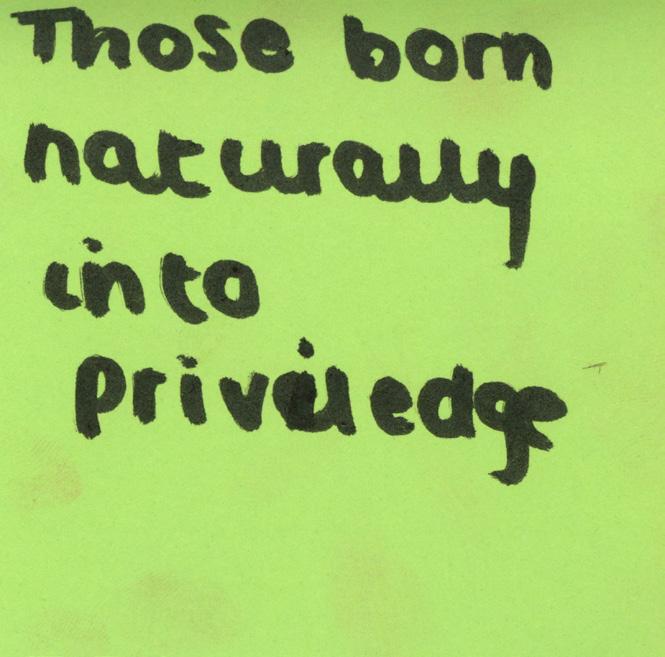 Those born
naturally
into
priviledge